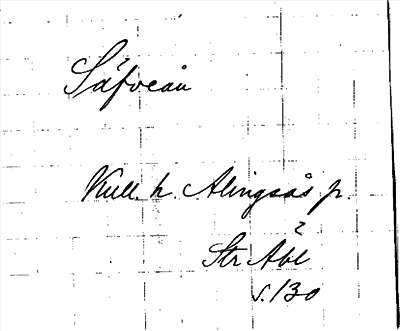 Säfveån
Kull. h. Alingsås p.
2
Str Åbl
s. 130